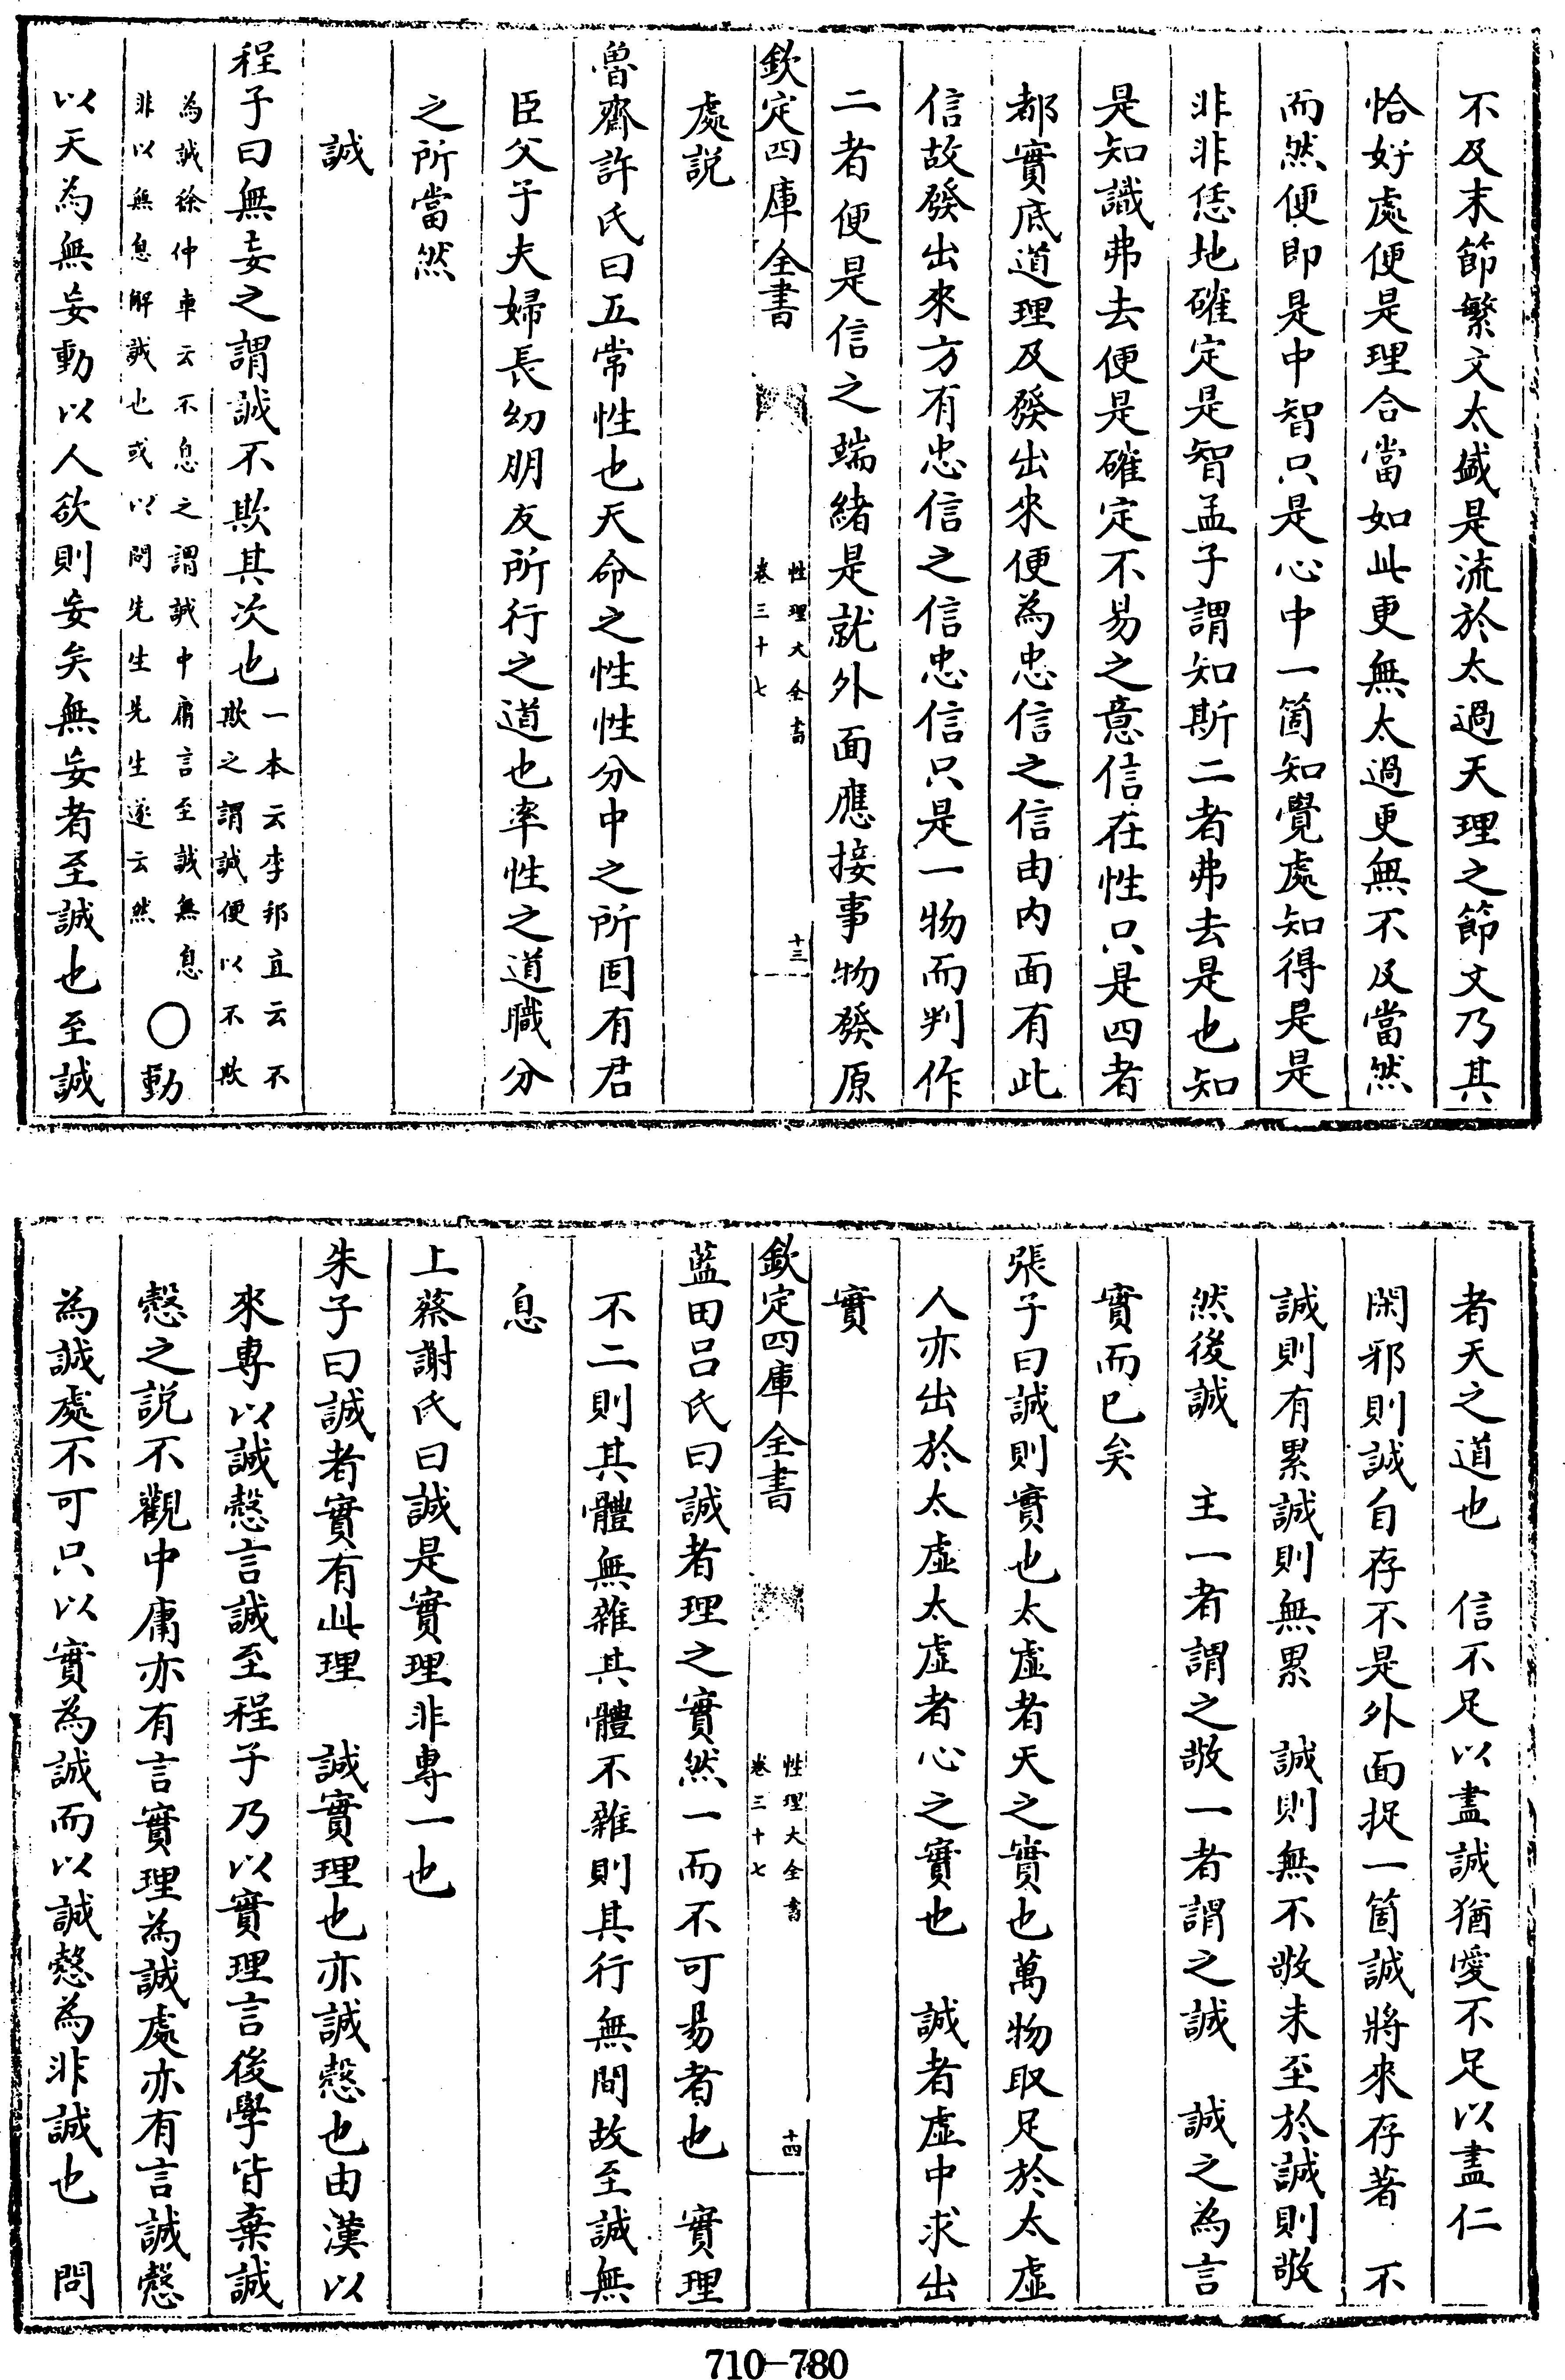 不及末節繁文太盛是流於太過天理之節文乃其
恰好處便是理合當如此更無太過更無不及當然
而然便即是中智只是心中一箇知覺處知得是是
非非恁地確定是智孟子謂知斯二者弗去是也知
是知識弗去便是確定不易之意信在性只是四者
都實底道理及發出來便為忠信之信由内面有此
信故發出來方有忠信之信忠信只是一物而判作
二者便是信之端緒是就外面應接事物發原
欽定四庫全書
性理大全書
卷三十七
十三
處説
魯齋許氏曰五常性也天命之性性分中之所固有君
臣父子夫婦長幼朋友所行之道也率性之道職分
之所當然
誠
程子曰無妄之謂誠不欺其次也
一本云李邦直云不
欺之謂誠便以不欺
為誠徐仲車云不息之謂誠中庸言至誠無息
非以無息解誠也或以問先生先生遂云然
○動
以天為無妄動以人欲則妄矣無妄者至誠也至誠
者天之道也　信不足以盡誠猶愛不足以盡仁
閑邪則誠自存不是外面捉一箇誠將來存著　不
誠則有累誠則無累　誠則無不敬未至於誠則敬
然後誠　主一者謂之敬一者謂之誠　誠之為言
實而已矣
張子曰誠則實也太虛者天之實也萬物取足於太虛
人亦出於太虛太虛者心之實也　誠者虛中求出
實
欽定四庫全書
性理大全書
卷三十七
十四
藍田呂氏曰誠者理之實然一而不可易者也　實理
不二則其體無雜其體不雜則其行無間故至誠無
息
上蔡謝氏曰誠是實理非專一也
朱子曰誠者實有此理　誠實理也亦誠慤也由漢以
來專以誠慤言誠至程子乃以實理言後學皆棄誠
慤之説不觀中庸亦有言實理為誠處亦有言誠慤
為誠處不可只以實為誠而以誠慤為非誠也　問
710-780